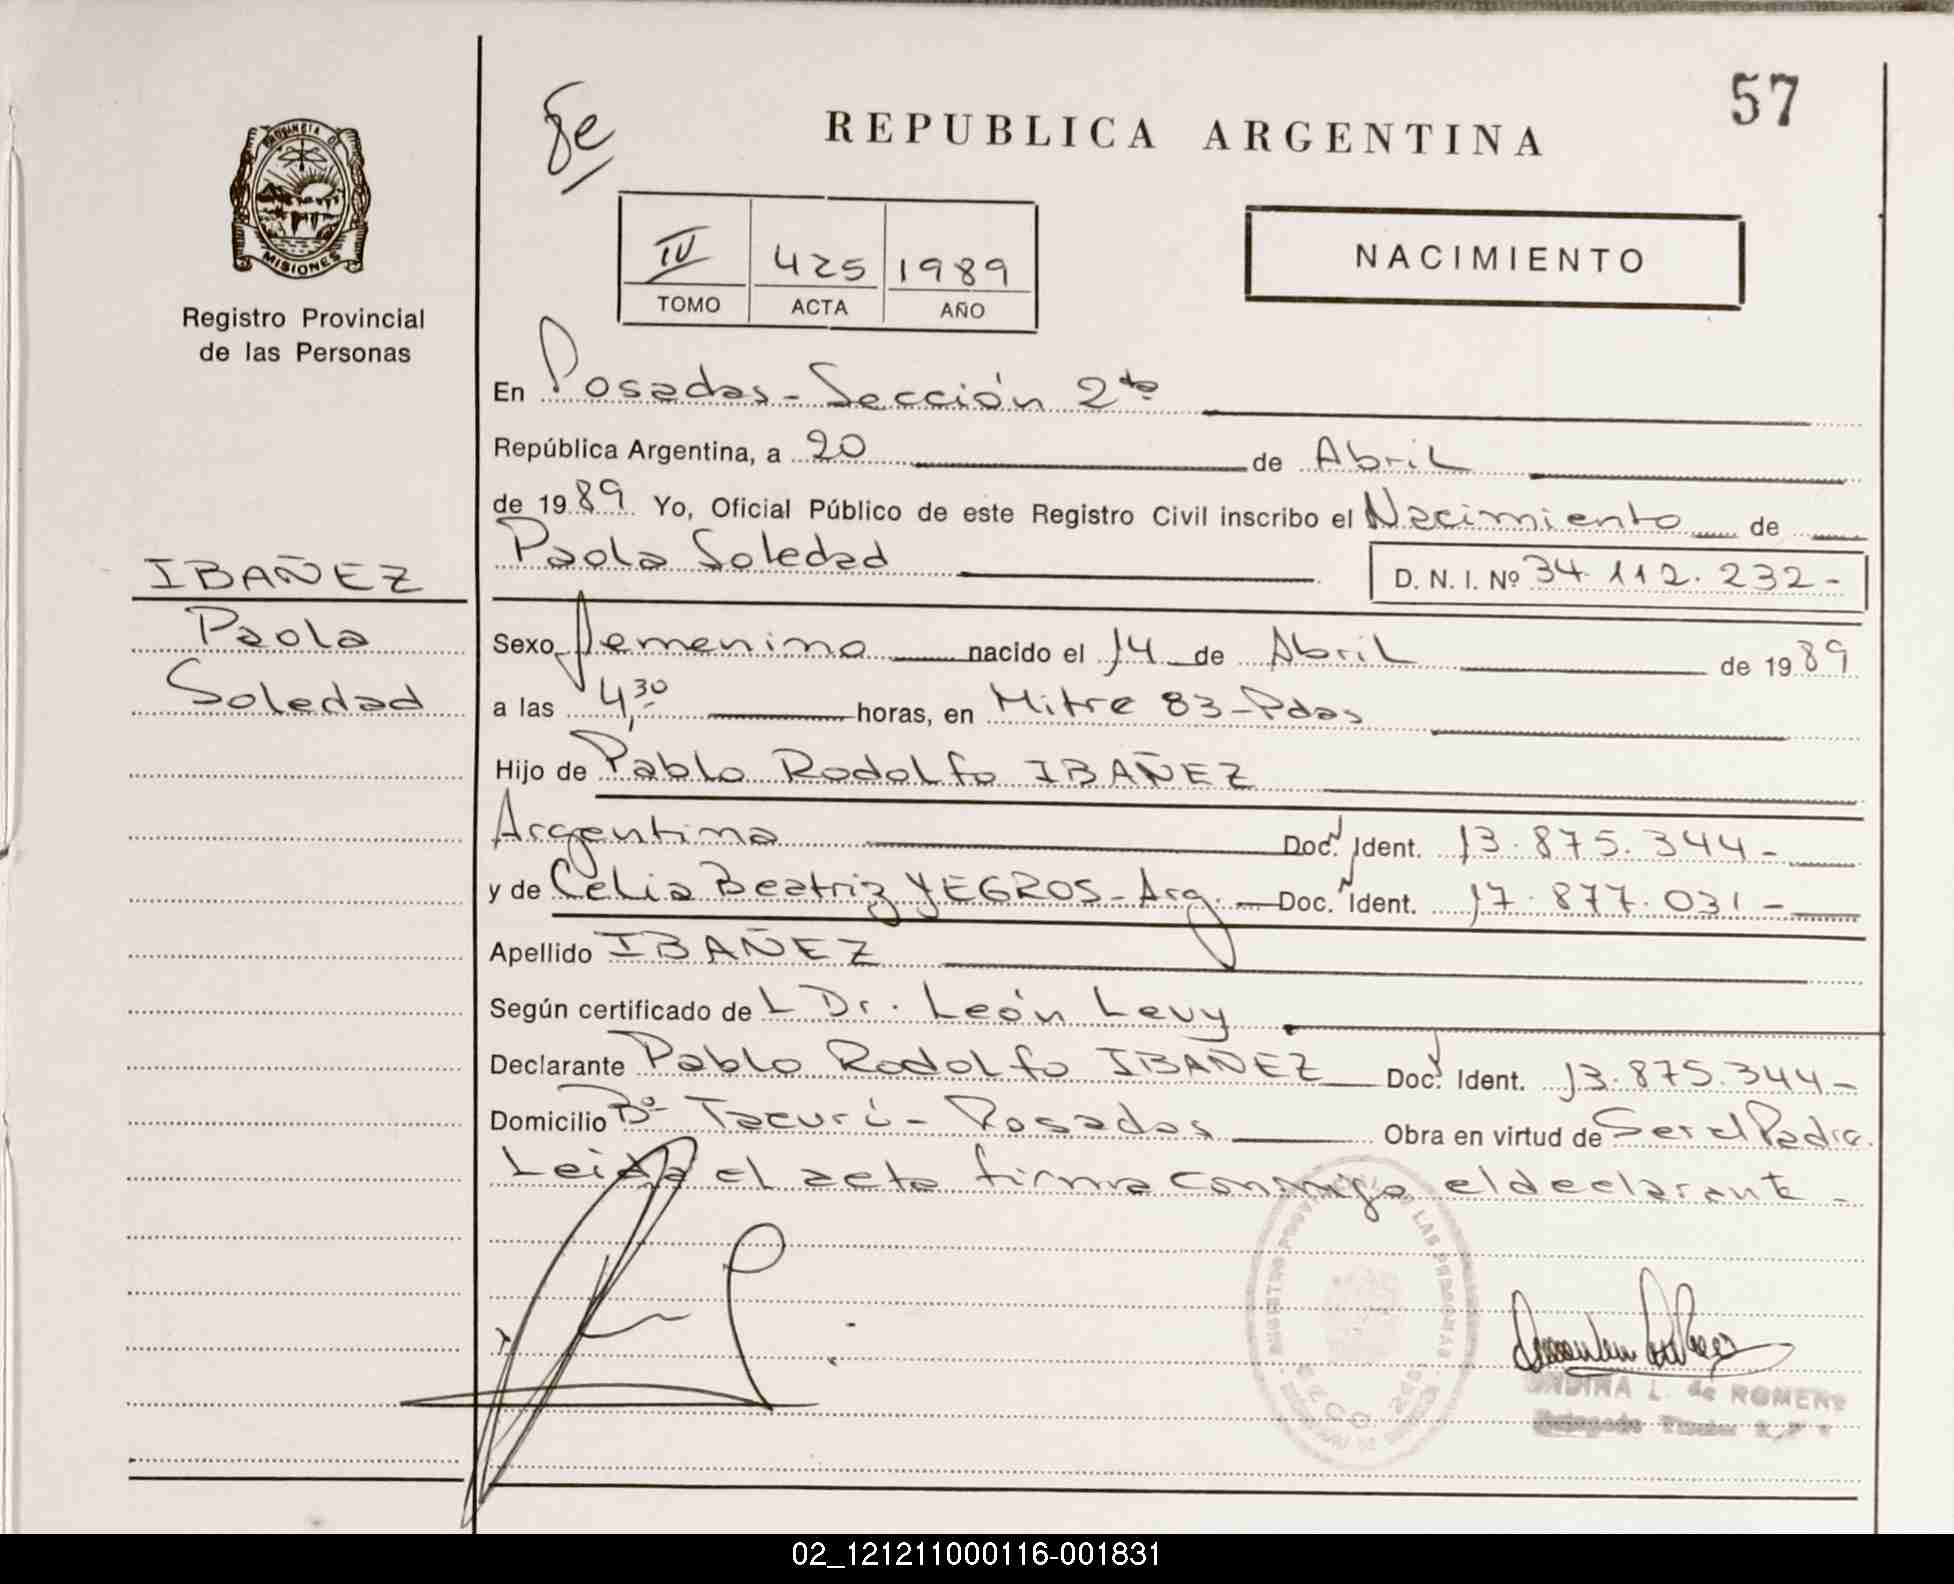 57
8e
REPUBLICA ARGENTINA
PROVINCIA D
MISIONES
Registro Provincial
de las Personas
IV 425 1989
TOMO ACTA AÑO
NACIMIENTO
En Posadas - Sección 2da
República Argentina, a 20 de Abril
de 1989 Yo, Oficial Público de este Registro Civil inscribo el Nacimiento de
Paola Soledad D. N. I. Nº 34.112.232-
IBAÑEZ
Paola
Soledad
Sexo Femenino nacido el 14 de Abril de 1989
a las 4,30 horas, en Mitre 83 - Pdas
Hijo de Pablo Rodolfo IBAÑEZ
Argentina Doc. Ident. 13.875.344-
y de Celia Beatriz YEGROS - Arg. Doc. Ident. 17.877.031-
Apellido IBAÑEZ
Según certificado de L Dr. León Levy
Declarante Pablo Rodolfo IBAÑEZ Doc. Ident. 13.875.344-
Domicilio Bº Tacurú - Posadas Obra en virtud de Ser el Padre.
Leida el acta firma conmigo el declarante -
LAS PERSONAS
ONDINA L. de ROMERO
Delegado Titular
02_121211000116-001831